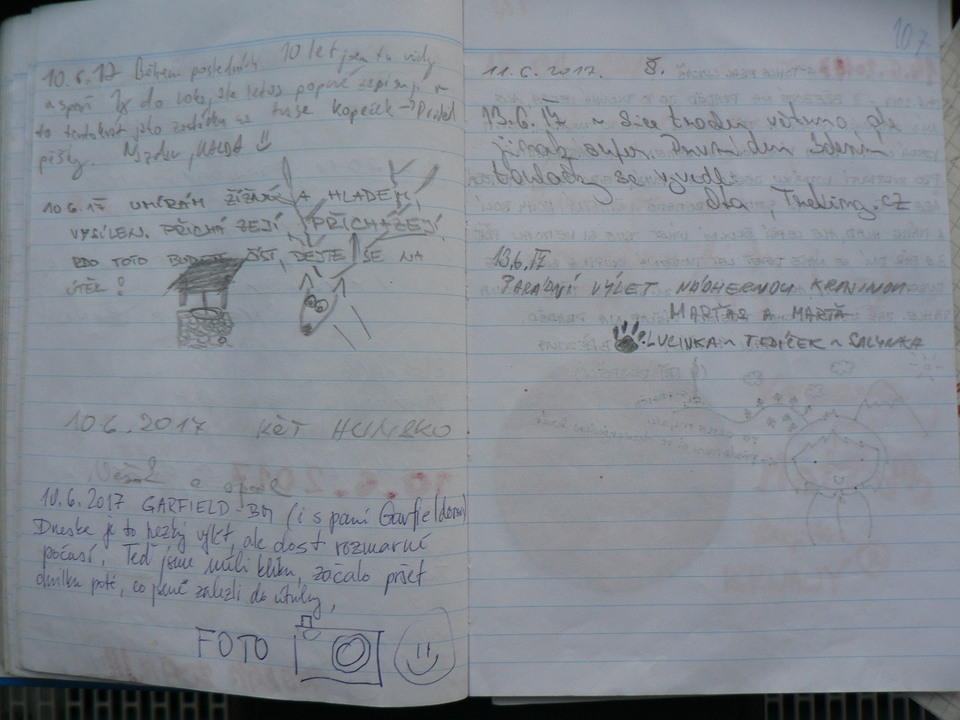 10.6.17 Během posledních 10 let jsem tu vždy
aspoň 1x do roka, ale letos poprvé zapisuji
to tentokrát jako zastávku na trase kopeček →
pěšky. Nazdar,
10.6.17 UMÍRÁM ŽÍZNÍ A HLADEM,
VYSÍLEN. PŘICHÁZEJÍ, PŘICHÁZEJÍ,
KDO TOTO BUDETE ČÍST, DEJTE SE NA
ÚTĚK!
10.6.2017 KČT
10.6.2017 GARFIELD-BM (i s paní Garfieldovou)
Dneska je to hezký výlet, ale dost rozmarné
počasí. Teď jsme měli kliku, začalo pršet
chvilku poté, co jsme zalezli do útulny.
FOTO
107
11.6.2017. Š.
13.6.17 ~ Sice trochu větrno, ale
jinak super. První den
se vyvedl.
Treking.cz
13.6.17
PARÁDNÍ VÝLET NÁDHERNOU KRAJINOU
MARŤAS A MARŤA
LUCINKA ~ TEDÍČEK ~